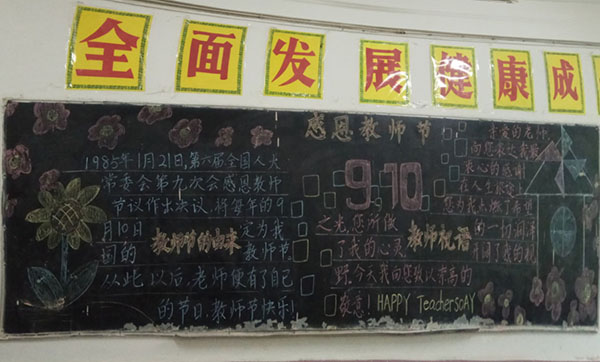 全面发展健康成
感恩教师节
1985年1月21日,第六届全国人大
常委会第九次会感恩教师
节议作出决议,将每年的9
月10日
定为我
国的
教师节
教师节的由来
从此以后,老师便有了自己
的节日.教师节快乐!
9.10
亲爱的老师
向您表达我最
衷心的感谢
在人生旅途上
您为我点燃了希望
之光,您所做
的一切润泽
教师祝语
了我的心灵,
开阔了我的视
野,今天我向您致以崇高的
敬意! HAPPY TeachersDAY